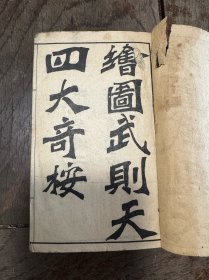 繪圖武則天
四大奇桉